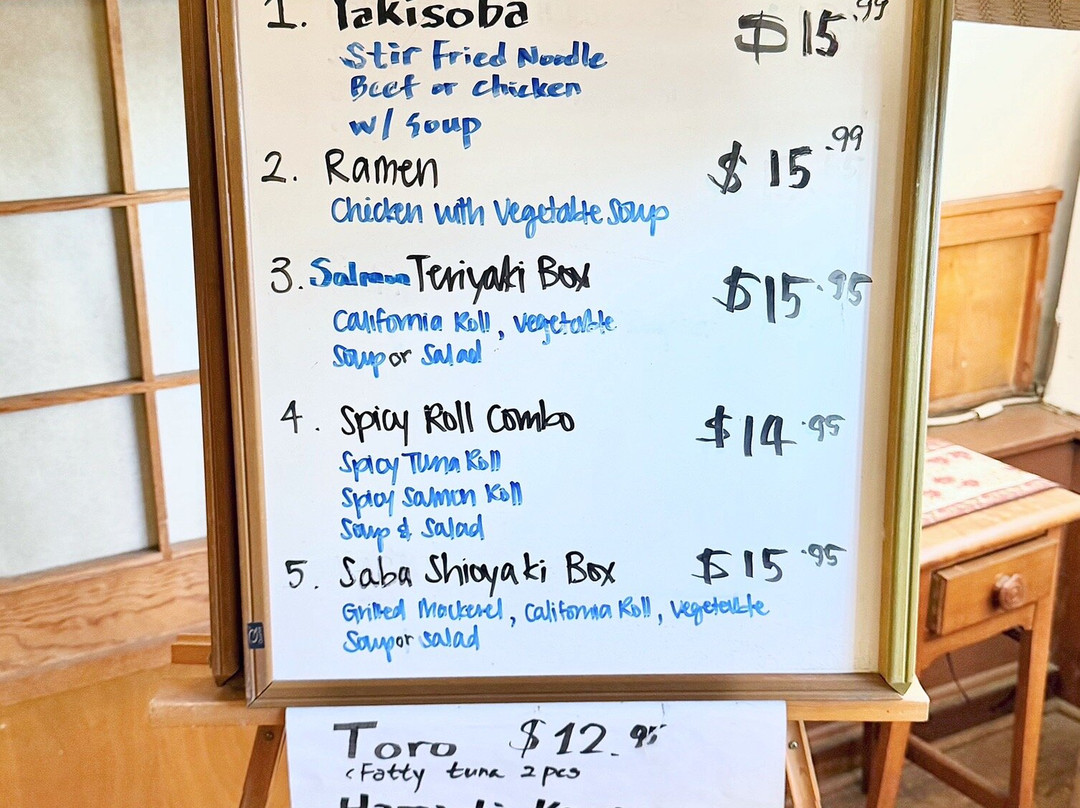 1. Yakisoba $15.99
Stir Fried Noodle
Beef or chicken
w/ Soup
2. Ramen $15.99
Chicken with Vegetable Soup
3. Salmon Teriyaki Box $15.95
California Roll, vegetable
Soup or Salad
4. Spicy Roll Combo $14.95
Spicy Tuna Roll
Spicy Salmon Roll
Soup & Salad
5. Saba Shioyaki Box $15.95
Grilled Mackerel, California Roll, vegetable
Soup or salad
Toro $12.95
(Fatty tuna 2pcs